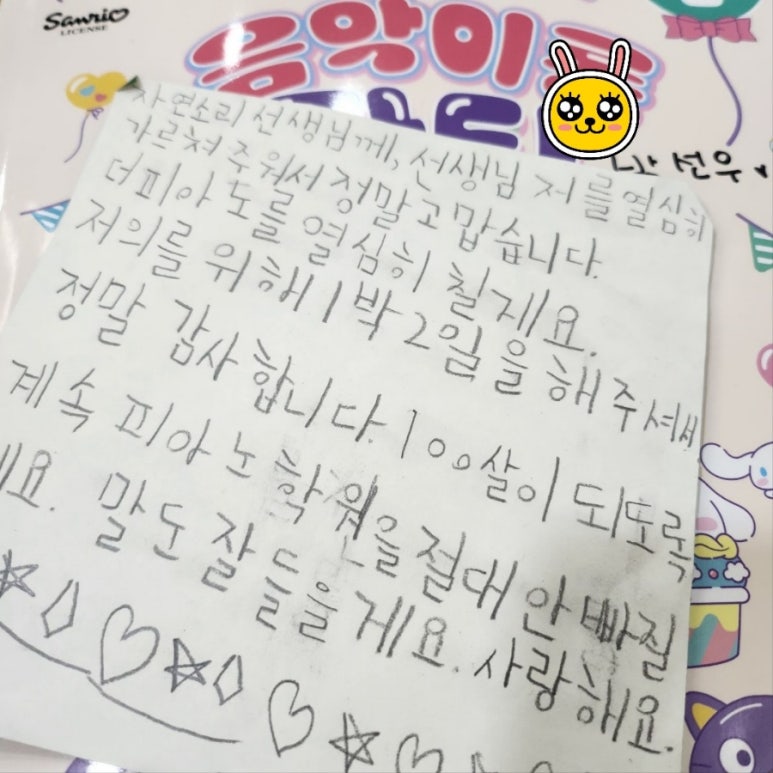 Sanrio
LICENSE
음악이론
선우♥
자연소리 선생님께, 선생님 저를 열심히
가르쳐 주워서 정말 고맙습니다.
더 피아도를 열심히 칠게요.
저의를 위해 1박2일을 해 주셔서
정말 감사합니다. 100살이 되도록
계속 피아노 학원을 절대 안 빠질
게요. 말도 잘 들을게요. 사랑해요.